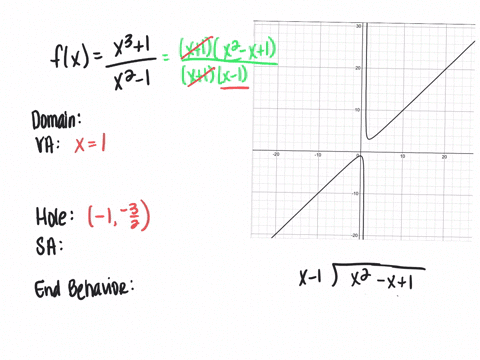 f(x) = x³+1 / x²-1 = (x+1)(x²-x+1) / (x+1)(x-1)
Domain:
VA: x=1
Hole: (-1, -3/2)
SA:
End Behavior:
30
20
10
-20
-10
0
10
20
-10
-20
x-1 ) x² -x+1